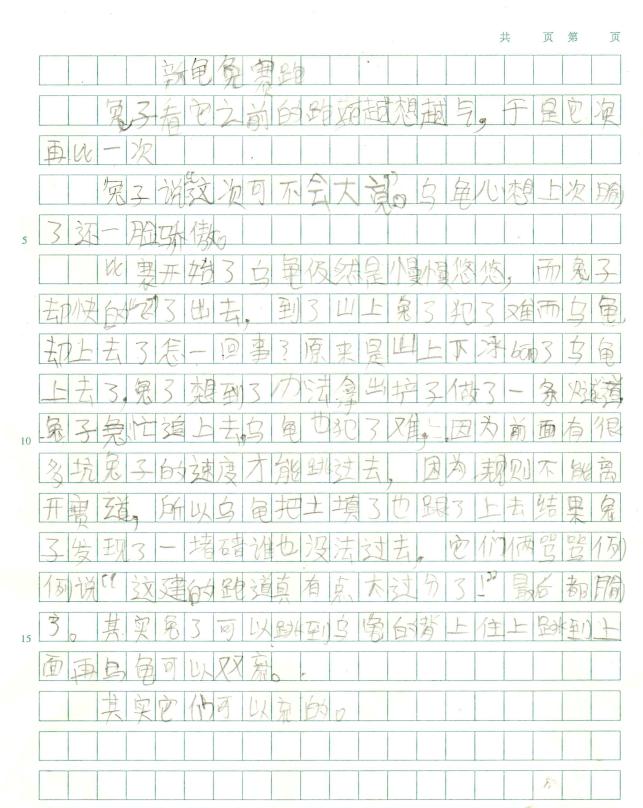 共 页 第 页
新龟兔赛跑
兔子看它之前的跑越想越气，于是它决
再比一次
兔子说“这次可不会大意”。乌龟心想上次输
5 了还一脸骄傲。
比赛开始了乌龟仍然是慢慢悠悠，而兔子
却快的了出去，到了山上兔了犯了难而乌龟
却上去了怎一回事？原来是山上下冰了乌龟
上去了，兔了想到了办法拿出铲子做了一条
10 兔子急忙追上去，乌龟也犯了难，因为前面有很
多坑兔子的速度才能跳过去，因为规则不能离
开赛道，所以乌龟把土填了也跟了上去结果兔
子发现了一堵谁也没法过去。它们俩骂骂例
例说“这建的跑道真有点大过分了！”最后都输
15 了。其实兔了可以跳到乌龟的背上住上跳到上
面再乌龟可以双赢。
其实它们可以的。